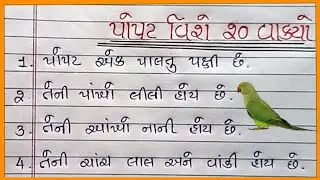 પોપટ વિશે ૨૦ વાક્યો
1. પોપટ એક પાલતુ પક્ષી છે.
2 તેની પાંખો લીલી હોય છે.
3. તેની આંખો નાની હોય છે.
4. તેની ચાંચ લાલ અને વાંકી હોય છે.